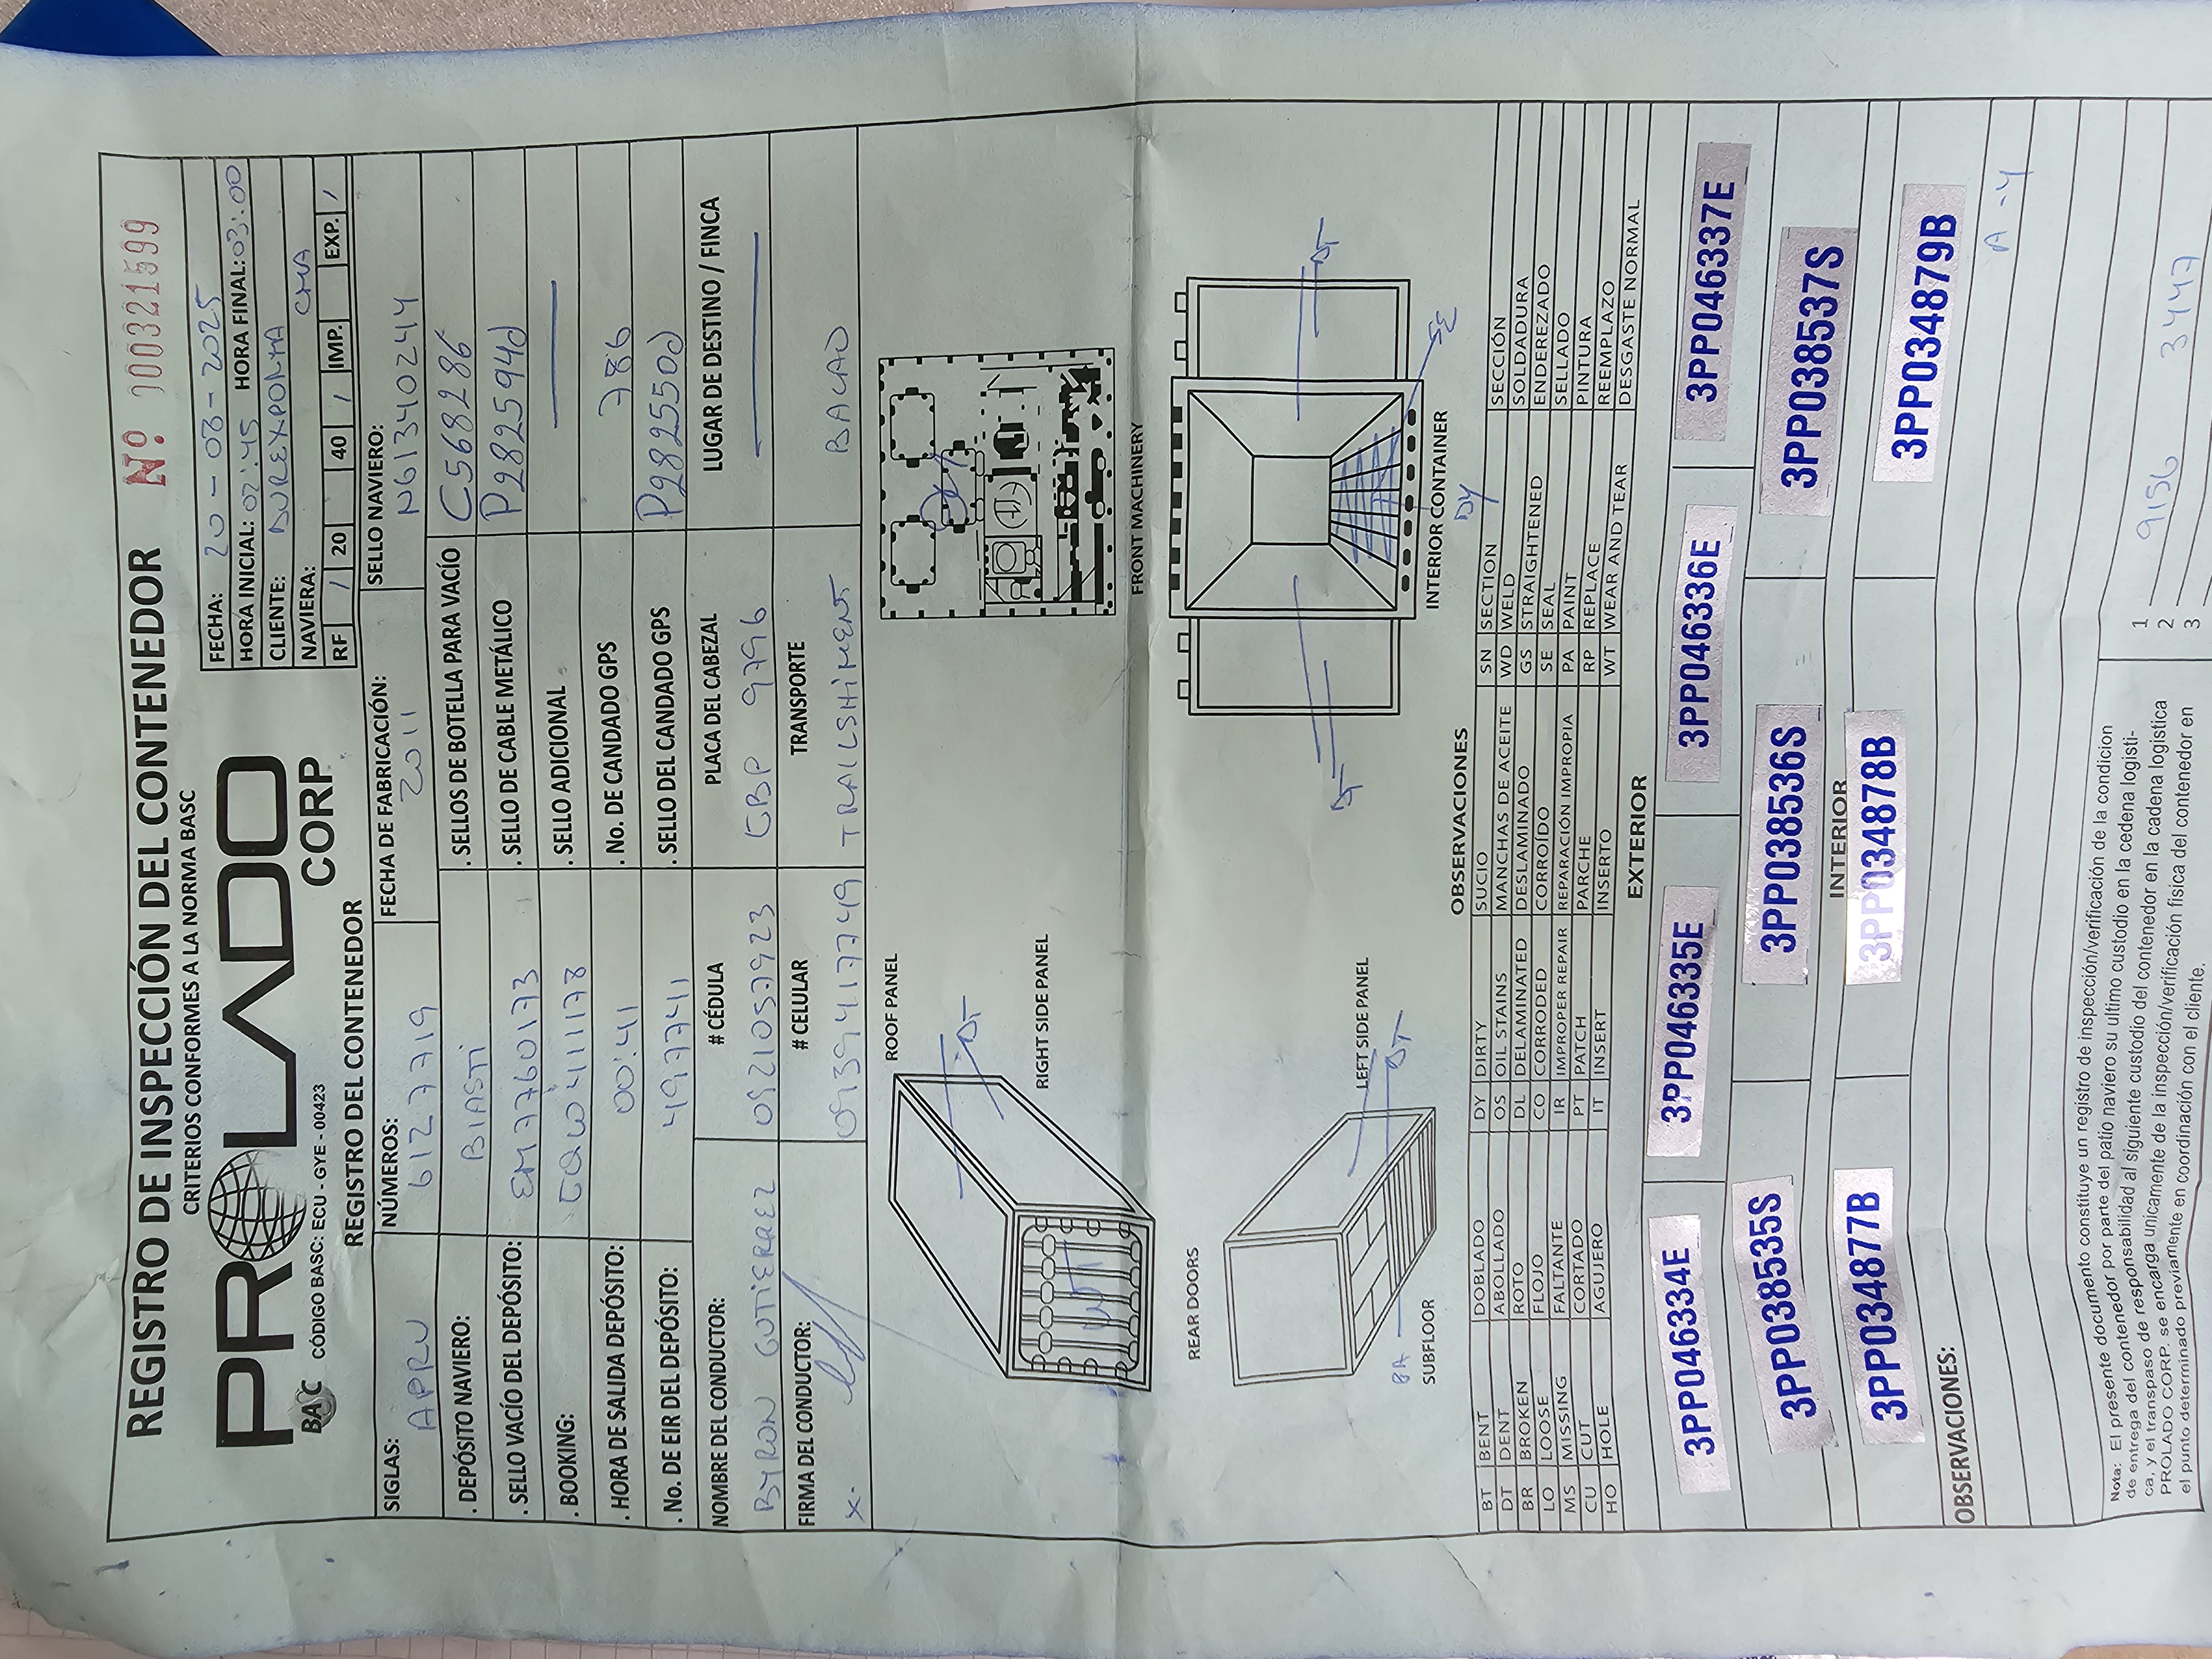 REGISTRO DE INSPECCIÓN DEL CONTENEDOR Nº 000321599
CRITERIOS CONFORMES A LA NORMA BASC
PROLADO
CORP
BASC CÓDIGO BASC: ECU - GYE - 00423
FECHA: 20-08-2025
HORA INICIAL: 02:45 HORA FINAL: 03:00
CLIENTE: DUREXPORTA
NAVIERA: CMA
RF / 20 40 / IMP. EXP. /
REGISTRO DEL CONTENEDOR
SIGLAS: NÚMEROS: FECHA DE FABRICACIÓN: SELLO NAVIERO:
APRU 6127719 2011 N61340244
. DEPÓSITO NAVIERO: BIASTI . SELLOS DE BOTELLA PARA VACÍO C568286
. SELLO VACÍO DEL DEPÓSITO: EM7760173 . SELLO DE CABLE METÁLICO P282594d
. BOOKING: . SELLO ADICIONAL
. HORA DE SALIDA DEPÓSITO: 00:41 . No. DE CANDADO GPS 786
. No. DE EIR DEL DEPÓSITO: 497741 . SELLO DEL CANDADO GPS P282550d
NOMBRE DEL CONDUCTOR: # CÉDULA PLACA DEL CABEZAL LUGAR DE DESTINO / FINCA
BYRON GUTIERREZ 0921057923 GBP 9796
FIRMA DEL CONDUCTOR: # CELULAR TRANSPORTE
x- 0939417749 BALAO
ROOF PANEL
DT
RIGHT SIDE PANEL
WT
FRONT MACHINERY
REAR DOORS
DT DT
LEFT SIDE PANEL
BA DT
SUBFLOOR
INTERIOR CONTAINER
DY
OBSERVACIONES
BT BENT DOBLADO DY DIRTY SUCIO SN SECTION SECCIÓN
DT DENT ABOLLADO OS OIL STAINS MANCHAS DE ACEITE WD WELD SOLDADURA
BR BROKEN ROTO DL DELAMINATED DESLAMINADO GS STRAIGHTENED ENDEREZADO
LO LOOSE FLOJO CO CORRODED CORROÍDO SE SEAL SELLADO
MS MISSING FALTANTE IR IMPROPER REPAIR REPARACIÓN IMPROPIA PA PAINT PINTURA
CU CUT CORTADO PT PATCH PARCHE RP REPLACE REEMPLAZO
HO HOLE AGUJERO IT INSERT INSERTO WT WEAR AND TEAR DESGASTE NORMAL
EXTERIOR
3PP046334E 3PP046335E 3PP046336E 3PP046337E
3PP038535S 3PP038536S 3PP038537S
INTERIOR
3PP034877B 3PP034878B 3PP034879B
OBSERVACIONES:
A-4
Nota: El presente documento constituye un registro de inspección/verificación de la condicion
de entrega del contenedor por parte del patio naviero su ultimo custodio en la cedena logisti-
ca, y el transpaso de responsabilidad al siguiente custodio del contenedor en la cadena logistica
PROLADO CORP. se encarga unicamente de la inspección/verificación fisica del contenedor en
el punto determinado previamente en coordinación con el cliente.
1
2 9156 3447
3